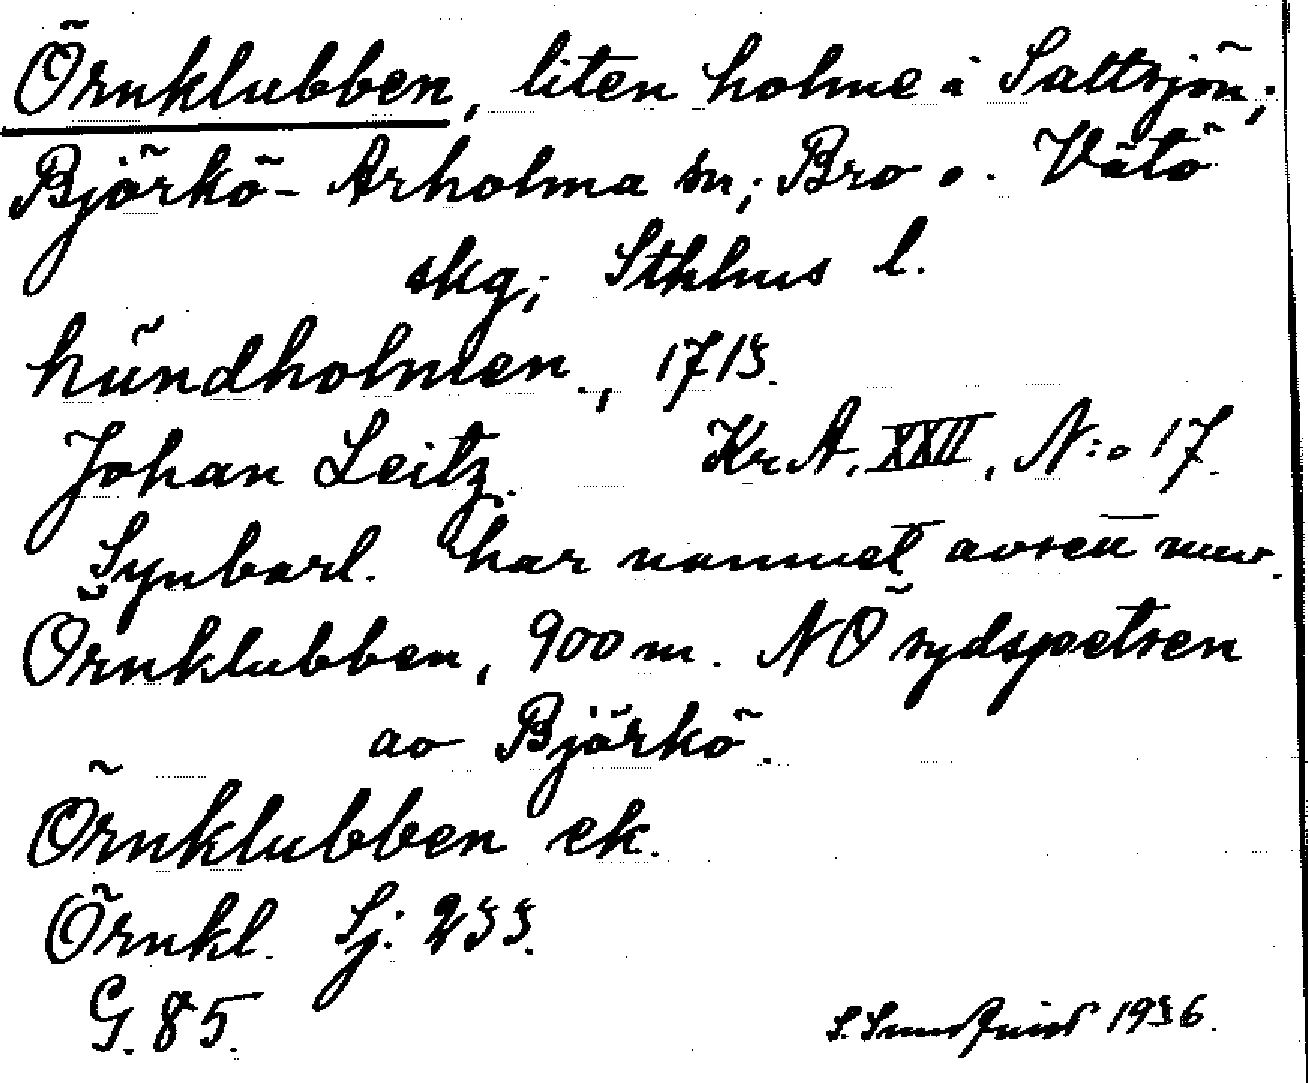 Örnklubben, liten holme i Saltsjön;
Björkö-Arholma sn; Bro o. Vätö
skg; Sthlms l.
hündholmen, 1713.
Johan Leitz. Kr.A. XXII, N:o 17.
Synbarl. har namnet avsett nuv.
Örnklubben, 900 m. NO sydspetsen
av Björkö.
Örnklubben ek.
Örnkl. Sj: 233.
G. 85.
1936.